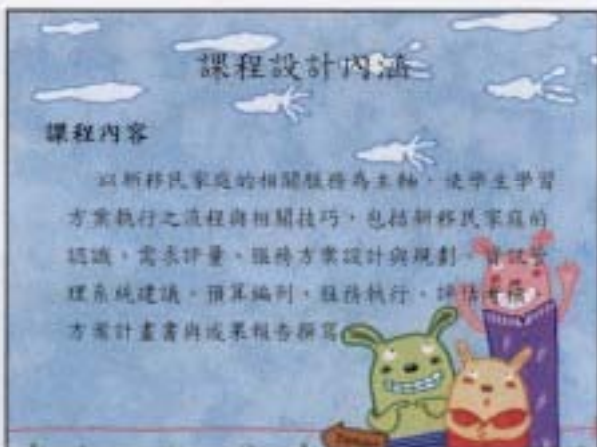 課程設計內涵
課程內容
以新移民家庭的相關服務為主軸，使學生學習
方案執行之流程與相關技巧，包括新移民家庭的
認識、需求評量、服務方案設計與規劃、資訊管
理系統建議、預算編列、服務執行、評估考核、
方案計畫書與成果報告撰寫